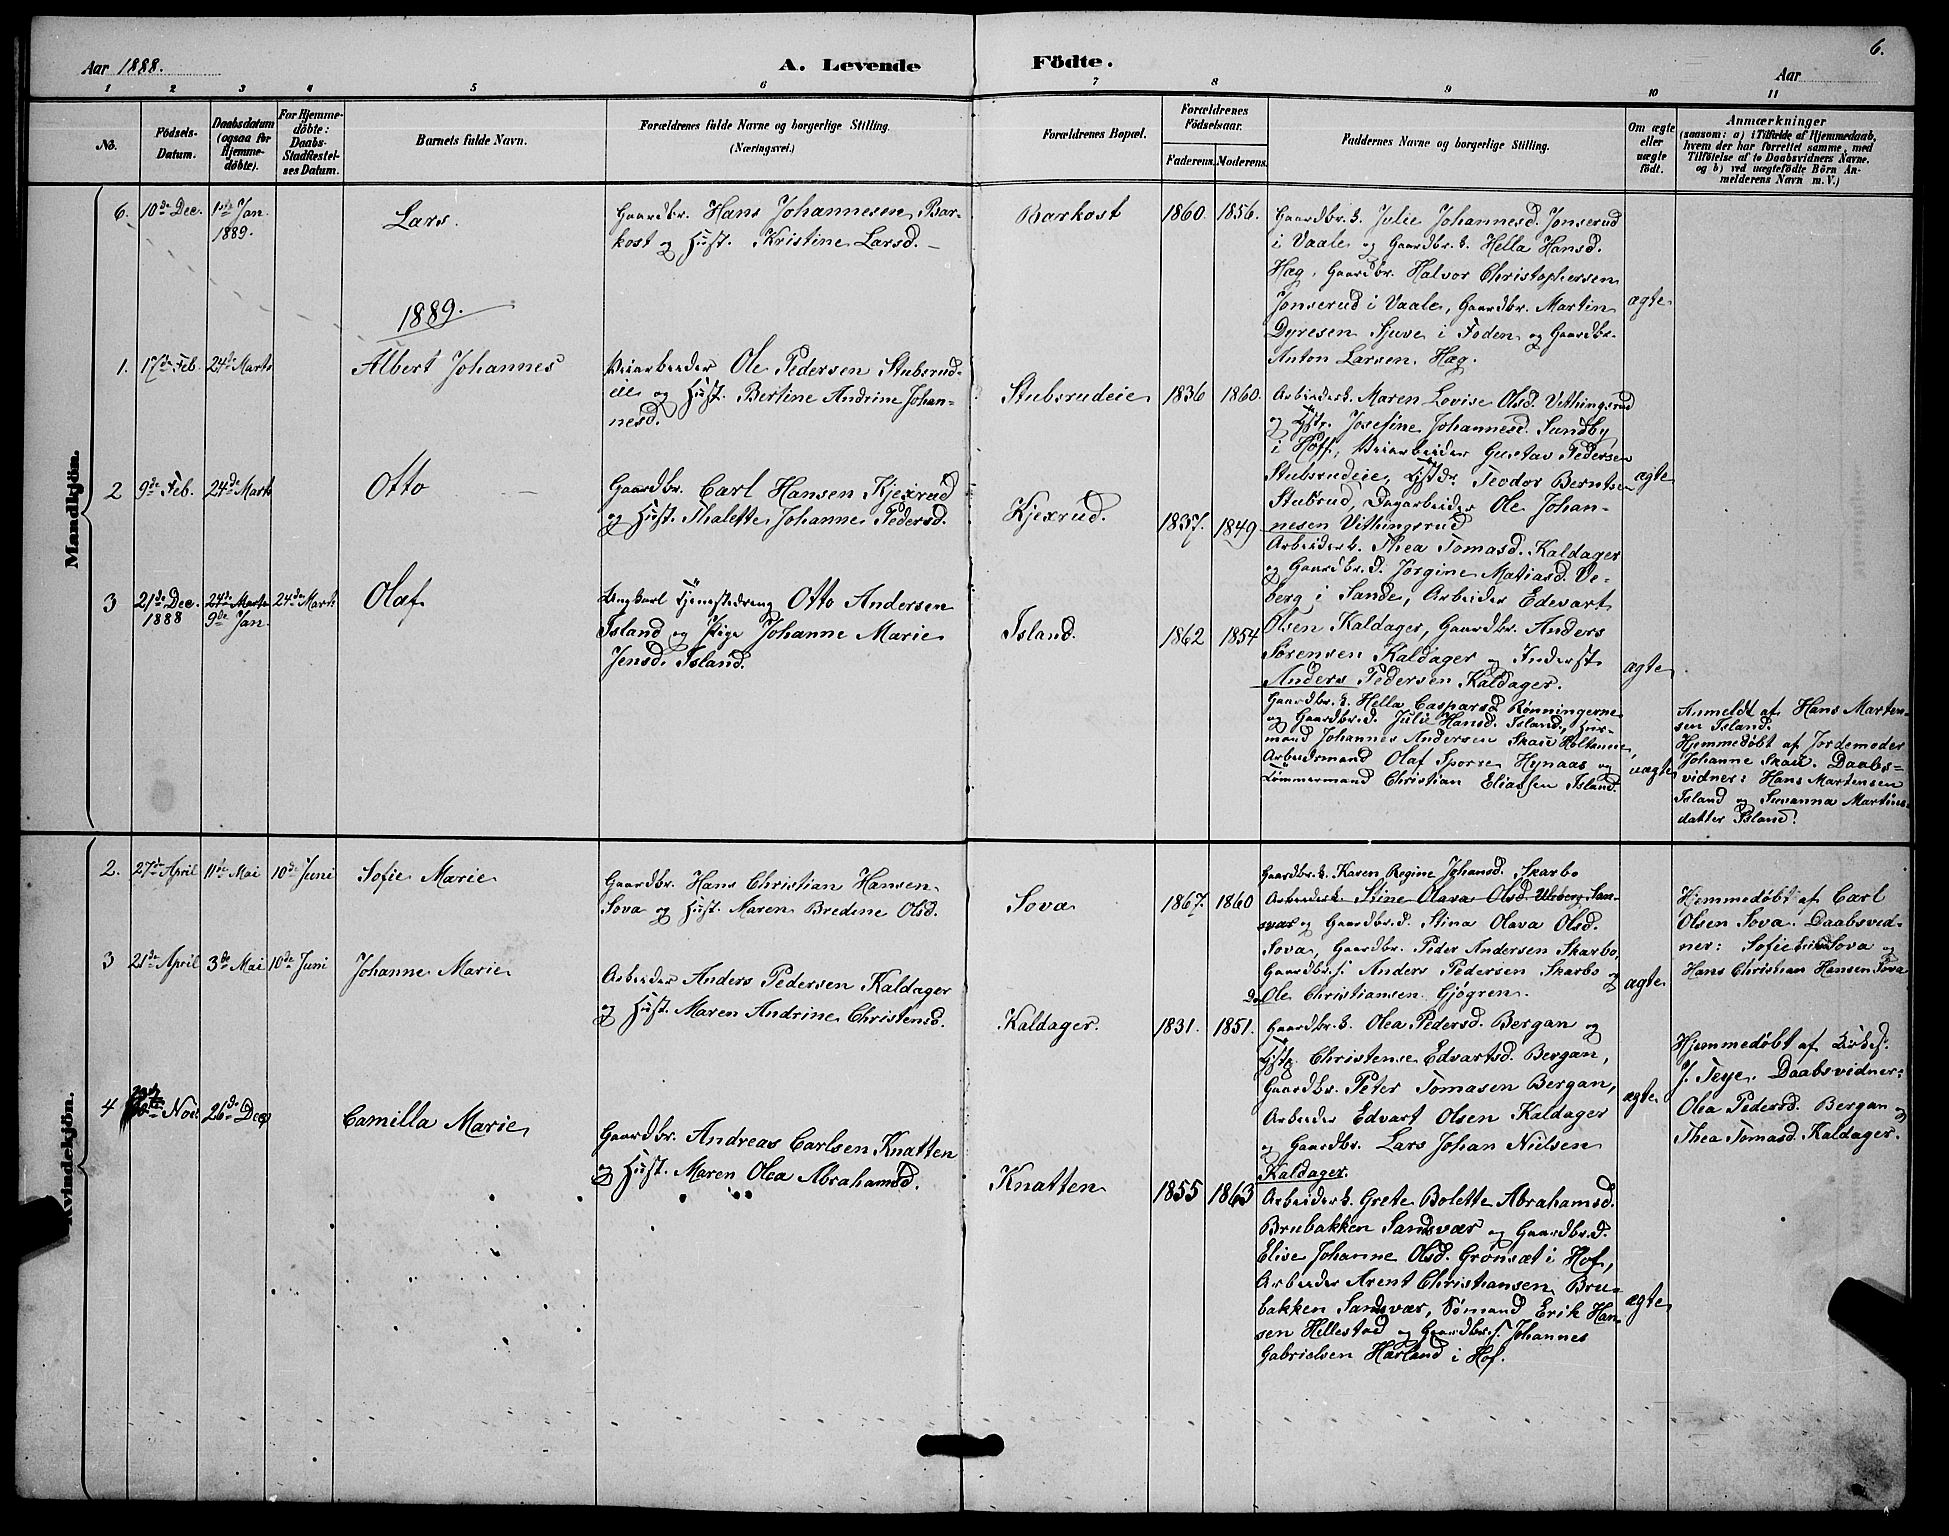 6.
Aar 1888.
A. Levende Födte.
Aar
1 2 3 4 5 6 7 8 9 10 11
No.
Födsels-
Datum.
Daabsdatum
(ogsaa for
Hjemme-
döbte).
For Hjemme-
döbte:
Daabs-
Stadfæstel-
ses Datum.
Barnets fulde Navn.
Forældrenes fulde Navne og borgerlige Stilling.
(Næringsvei.)
Forældrenes Bopæl.
Forældrenes
Födselsaar.
Faderens. Moderens.
Faddernes Navne og borgerlige Stilling.
Om ægte
eller
uægte
födt.
Anmærkninger
(saasom: a) i Tilfælde af Hjemmedaab,
hvem der har forrettet samme, med
Tilföielse af to Daabsvidners Navne.
og b) ved uægtefödte Börn An-
melderens Navn m. V.)
Mandkjön.
6. 10de Dec. 1ste Jan.
1889.
Lars.
Gaardbr. Hans Johannesen Bar-
kost og Hust. Kristine Larsd.
Barkost 1860. 1856.
Gaardbr.k. Julie Johannesd. Jonserud
i Vaale og Gaardbr.k. Hella Hansd.
Hæg, Gaardbr. Halvor Christophersen
Jonserud i Vaale, Gaardbr. Martin
Dyresen Sjuve i Foden og Gaardbr.
Anton Larsen Hæg.
ægte
1889.
1. 17de Feb. 24de Marts
Albert Johannes
Veiarbeider Ole Pedersen Stubsrud-
eie og Hust. Bertine Andrine Johan-
nesd.
Stubsrudeie 1836 1860.
Arbeiderk. Maren Lovise Olsd. Vethungsrud
og Josefine Johannesd. Sundby
i Hoff, Veiarbeider Gustav Pedersen
Stubsrudeie, Teodor Berntsen
Stubsrud, Dagarbeider Ole Johan-
nesen Vithungsrud
ægte
2 9de Feb. 24de Marts
Otto
Gaardbr. Carl Hansen Kjexrud
og Hust. Thalette Johanne Pedersd.
Kjexrud. 1837. 1849
Arbeiderk. Thea Tomasd. Kaldager
og Gaardbr.d. Jørgine Matiasd. Ve-
berg i Sande, Arbeider Edevart
Olsen Kaldager, Gaardbr. Anders
Sørensen Kaldager og Inderst
Anders Pedersen Kaldager.
ægte
3 21de Dec.
1888
24de Marts
9de Jan.
24de Marts
Olaf
Ungkarl Tjenestedreng Otto Andersen
Island og Pige Johanne Marie
Jensd. Island.
Island. 1862 1854
Gaardbr.k. Hella Caspersd Rønningerne
og Gaardbr.d. Julie Hansd. Island, Hus-
mand Johannes Andersen Skaue Holtaneie,
Arbeidsmand Olaf Sporse Hynaas og
Tømmermand Christian Eliassen Island.
uægte
Anmeldt af Hans Marten-
sen Island.
Hjemmedøbt af Jordemoder
Johanne Skau. Daabs-
vidner: Hans Martensen
Island og Susanna Martins-
datter Island!
Kvindekjön.
2. 27de April 11te Mai 10de Juni
Sofie Marie
Gaardbr. Hans Christian Hansen
Sova og Hust. Maren Bredine Olsd.
Sova 1867. 1860
Gaardbr.k. Karen Regine Johansd. Skarbo
Arbeiderk. Stine Olava Olsd. Ulsberg San-
svær og Gaardbr.d. Stina Olava Olsd.
Sova, Gaardbr. Peder Andersen Skarbo,
Gaardbr.s. Anders Pedersen Skarbo og
Do Ole Christiansen Gjøgren.
ægte
Hjemmedøbt af Carl
Olsen Sova. Daabsvid-
ner: Sofie Sova og
Hans Christian Hansen Sova
3 21de April 3de Mai 10de Juni
Johanne Marie
Arbeider Anders Pedersen Kaldager
og Hust. Maren Andrine Christensd.
Kaldager. 1831. 1851.
Gaardbr.k. Olea Pedersd. Bergan og
Christense Edvartsd. Bergan,
Gaardbr. Peter Tomasen Bergan,
Arbeider Edvart Olsen Kaldager
og Gaardbr. Lars Johan Nielsen
Kaldager.
ægte
Hjemmedøbt af Kirkes.
J. Teye. Daabsvidner:
Olea Pedersd. Bergan og
Thea Tomasd. Kaldager.
4 Nov. 26de Dec
Camilla Marie
Gaardbr. Andreas Carlsen Knatten
og Hust. Maren Olea Abrahamsd.
Knatten 1855 1863
Arbeiderk. Grete Bolette Abrahamsd.
Brubakken Sandsvær og Gaardbr.d.
Elise Johanne Olsd. Grønsæt i Hof,
Arbeider Arent Christiansen Bru-
bakken Sandsvær, Sømand Erik Han-
sen Hellestad og Gaardbr.s. Johannes
Gabrielsen Hærland i Hof.
ægte